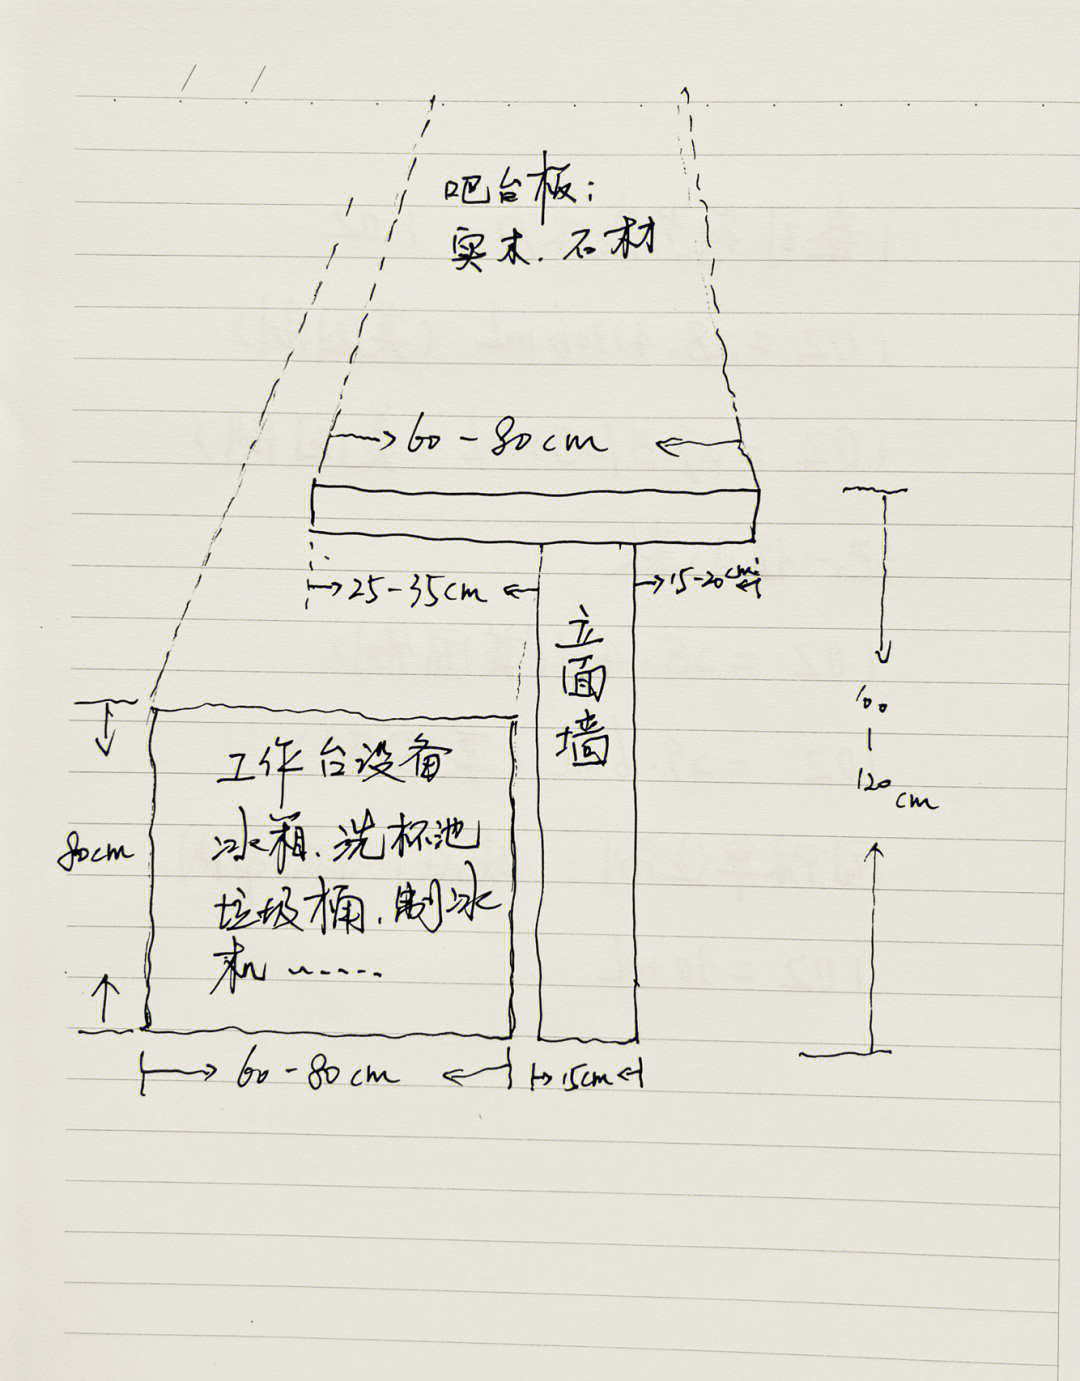 吧台板:
实木、石材
60-80cm
25-35cm
15-20cm
立面墙
100-120cm
工作台设备
冰箱、洗杯池
垃圾桶、制冰
机……
80cm
60-80cm
15cm